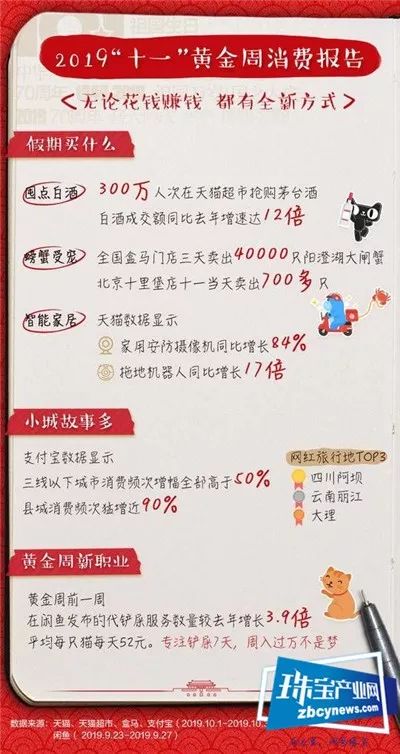 2019“十一”黄金周消费报告
<无论花钱赚钱 都有全新方式>
假期买什么
囤点白酒 300万人次在天猫超市抢购茅台酒
白酒成交额同比去年增速达12倍
螃蟹受宠 全国盒马门店三天卖出40000只阳澄湖大闸蟹
北京十里堡店十一当天卖出700多只
智能家居 天猫数据显示
家用安防摄像机同比增长84%
拖地机器人同比增长17倍
小城故事多
支付宝数据显示
三线以下城市消费频次增幅全部高于50%
县城消费频次猛增近90%
网红旅行地TOP3
四川阿坝
云南丽江
大理
黄金周新职业
黄金周前一周
在闲鱼发布的代铲屎服务数量较去年增长3.9倍
平均每只猫每天52元。专注铲屎7天，周入过万不是梦
数据来源：天猫、天猫超市、盒马、支付宝（2019.10.1—2019.10.
闲鱼（2019.9.23—2019.9.27）
珠宝产业网
zbcynews.com